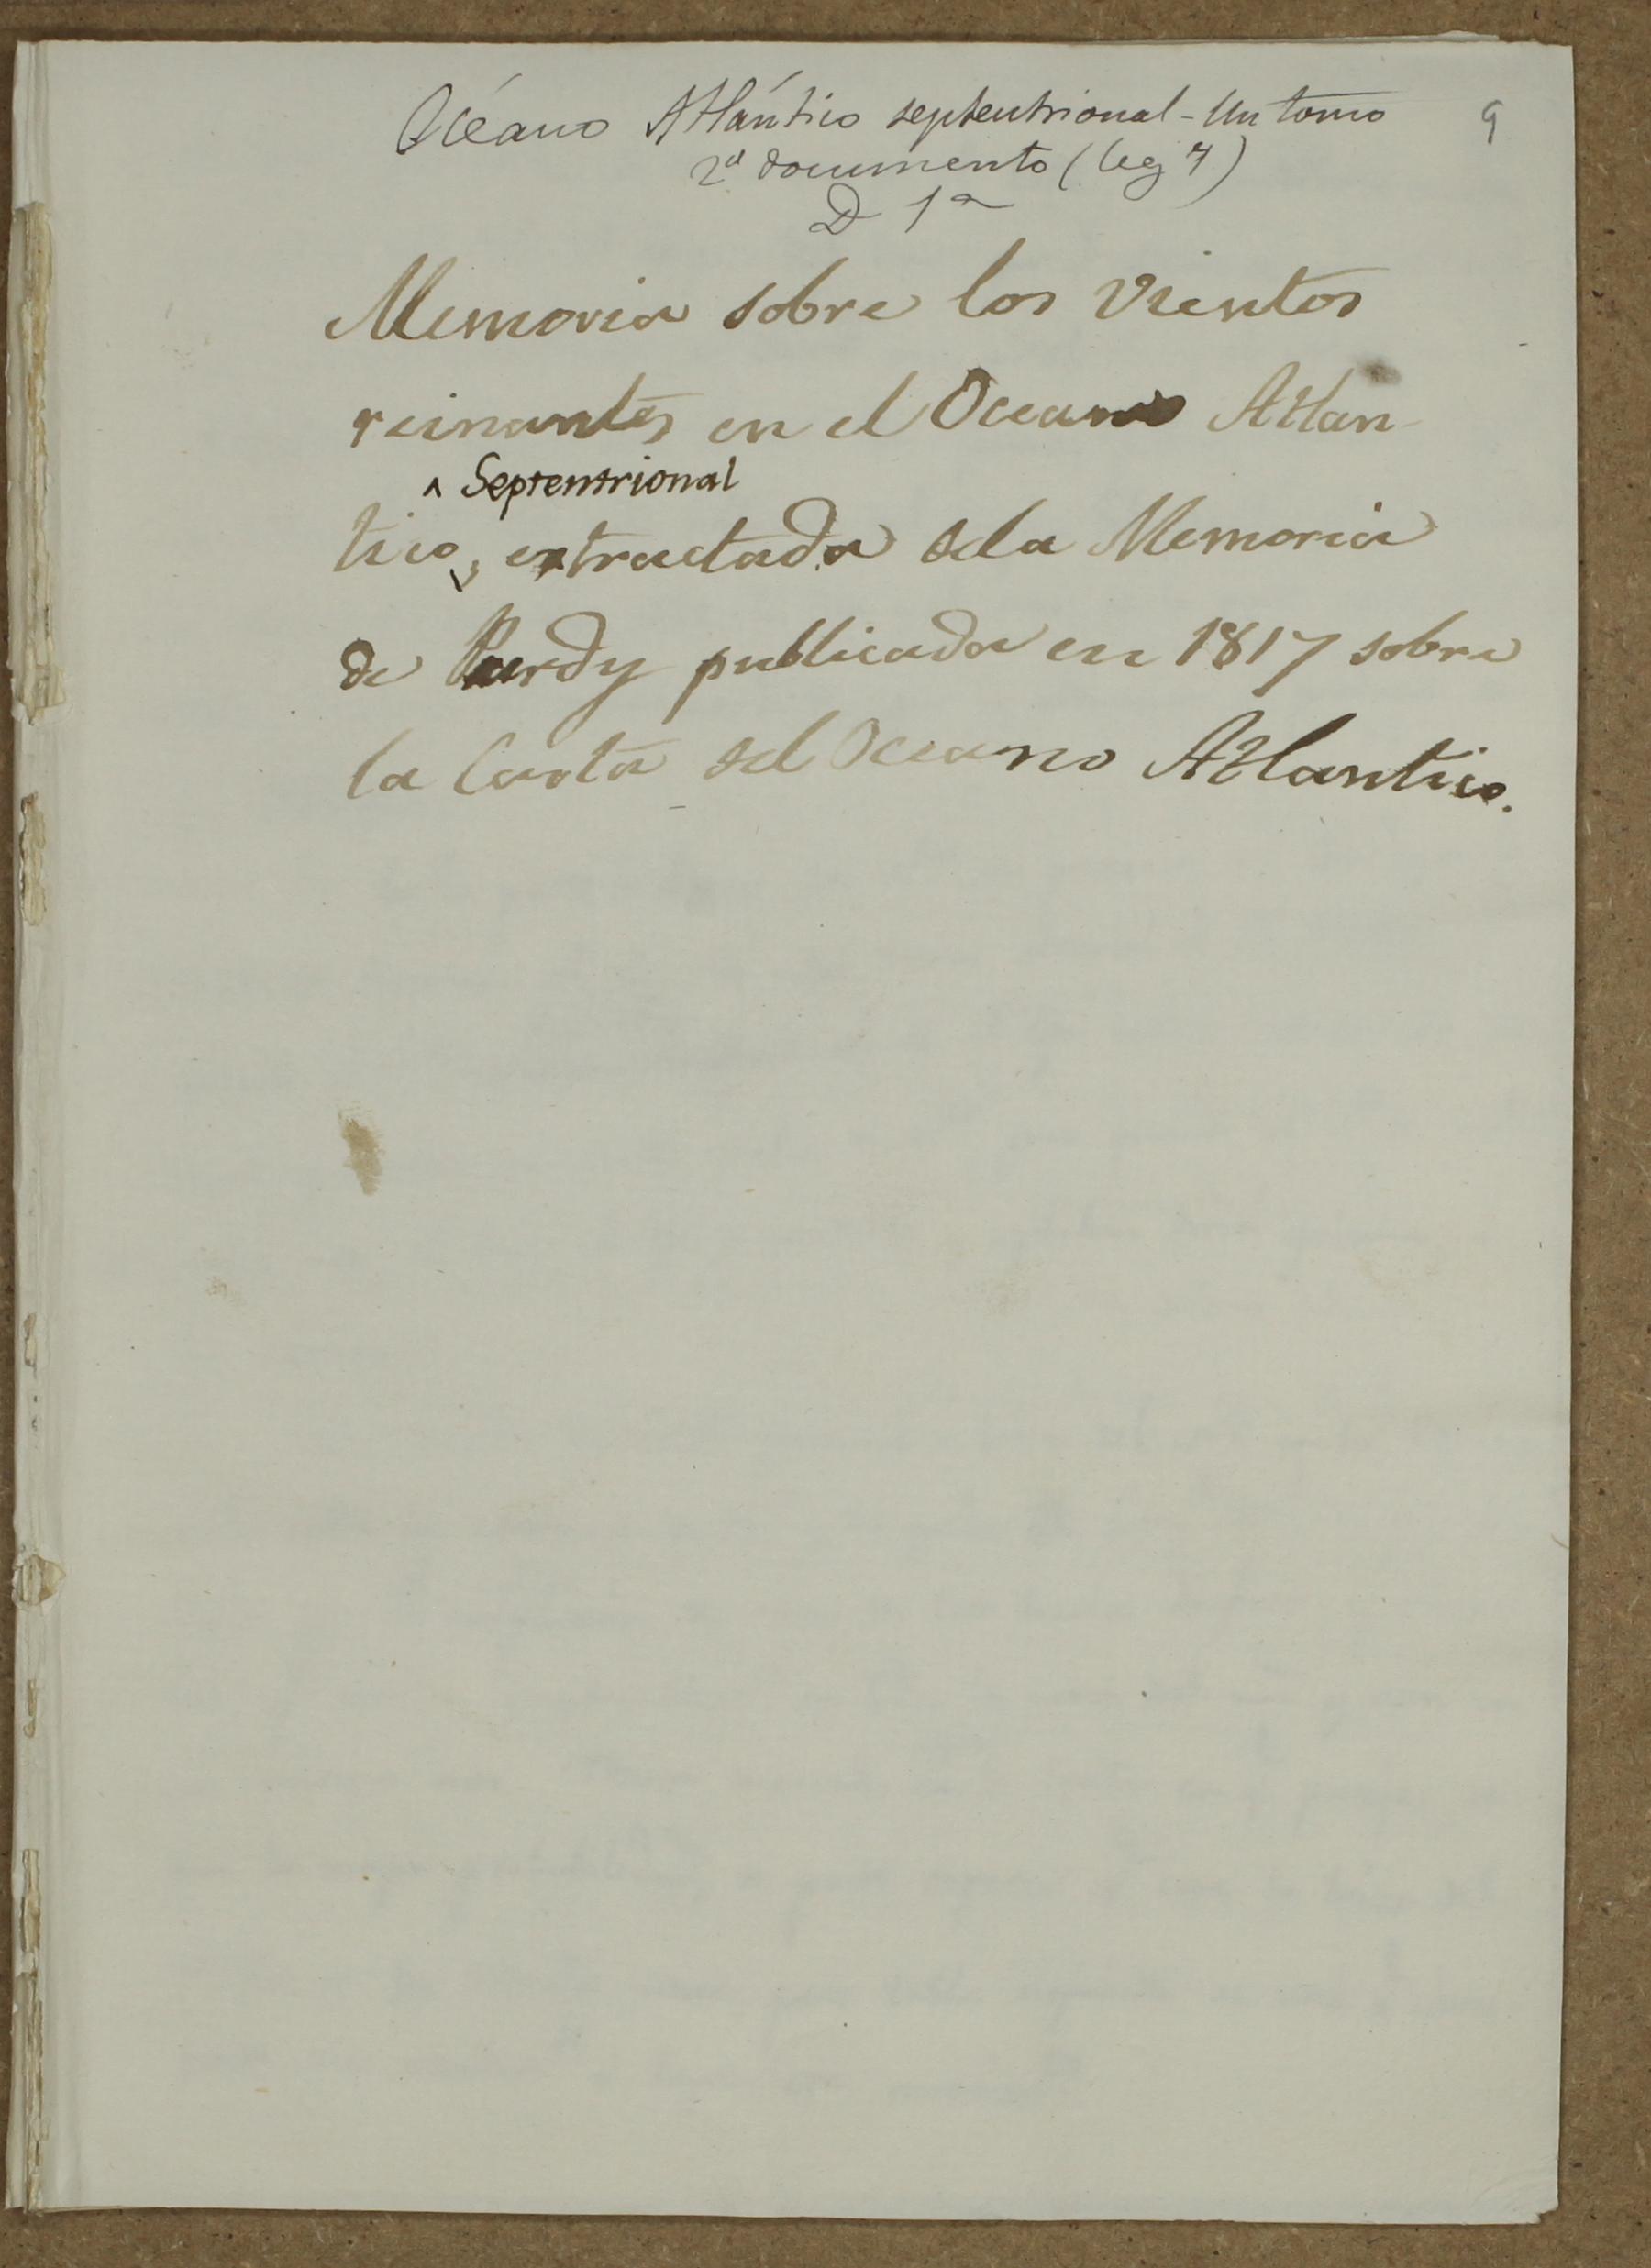 Océano Atlántico septentrional - Un tomo 9
2º documento (leg 7)
D 1ª
Memoria sobre los Vientos
reinantes en el Oceano Atlan-
^ Septentrional
tico, extractada dela Memoria
de Purdy publicada en 1817 sobre
la Carta del Oceano Atlantico.